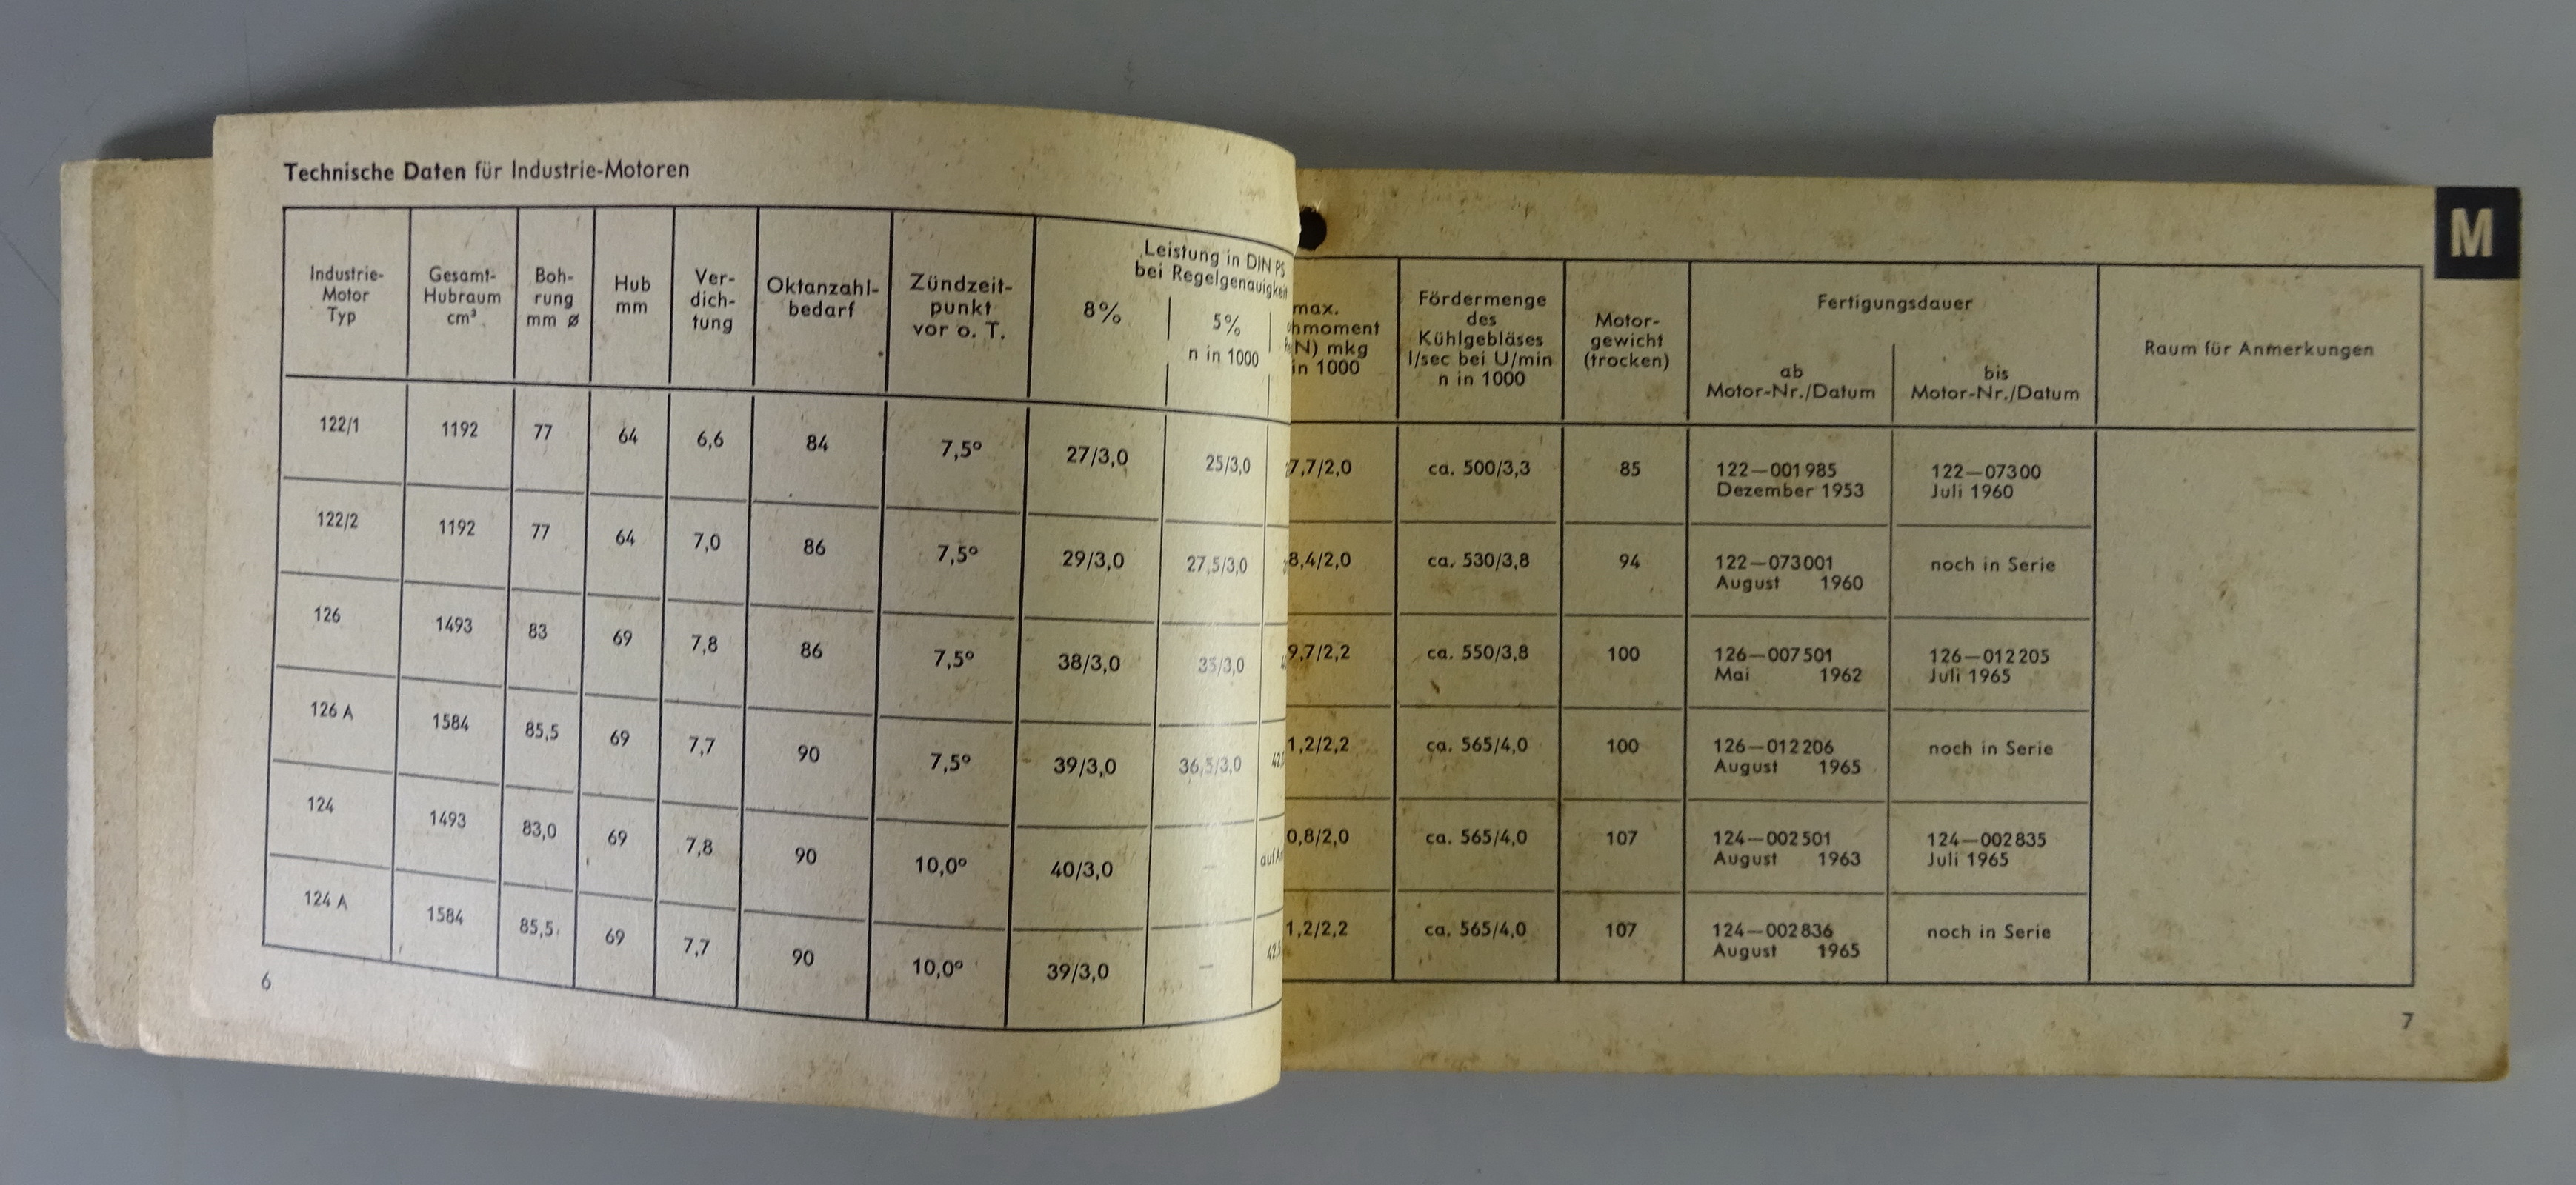 Technische Daten für Industrie-Motoren
Industrie-
Motor
Typ
Gesamt-
Hubraum
cm³
Boh-
rung
mm ø
Hub
mm
Ver-
dich-
tung
Oktanzahl-
bedarf
Zündzeit-
punkt
vor o. T.
Leistung in DIN PS
bei Regelgenauigkeit
8%
5%
n in 1000
122/1 1192 77 64 6,6 84 7,5° 27/3,0 25/3,0
122/2 1192 77 64 7,0 86 7,5° 29/3,0 27,5/3,0
126 1493 83 69 7,8 86 7,5° 38/3,0 35/3,0
126 A 1584 85,5 69 7,7 90 7,5° 39/3,0 36,5/3,0
124 1493 83,0 69 7,8 90 10,0° 40/3,0 —
124 A 1584 85,5 69 7,7 90 10,0° 39/3,0 —
6
M
max.
hmoment
N) mkg
in 1000
Fördermenge
des
Kühlgebläses
l/sec bei U/min
n in 1000
Motor-
gewicht
(trocken)
Fertigungsdauer
ab
Motor-Nr./Datum
bis
Motor-Nr./Datum
Raum für Anmerkungen
7,7/2,0 ca. 500/3,3 85 122—001985 122—07300
Dezember 1953 Juli 1960
8,4/2,0 ca. 530/3,8 94 122—073001 noch in Serie
August 1960
9,7/2,2 ca. 550/3,8 100 126—007501 126—012205
Mai 1962 Juli 1965
1,2/2,2 ca. 565/4,0 100 126—012206 noch in Serie
August 1965
0,8/2,0 ca. 565/4,0 107 124—002501 124—002835
August 1963 Juli 1965
1,2/2,2 ca. 565/4,0 107 124—002836 noch in Serie
August 1965
7